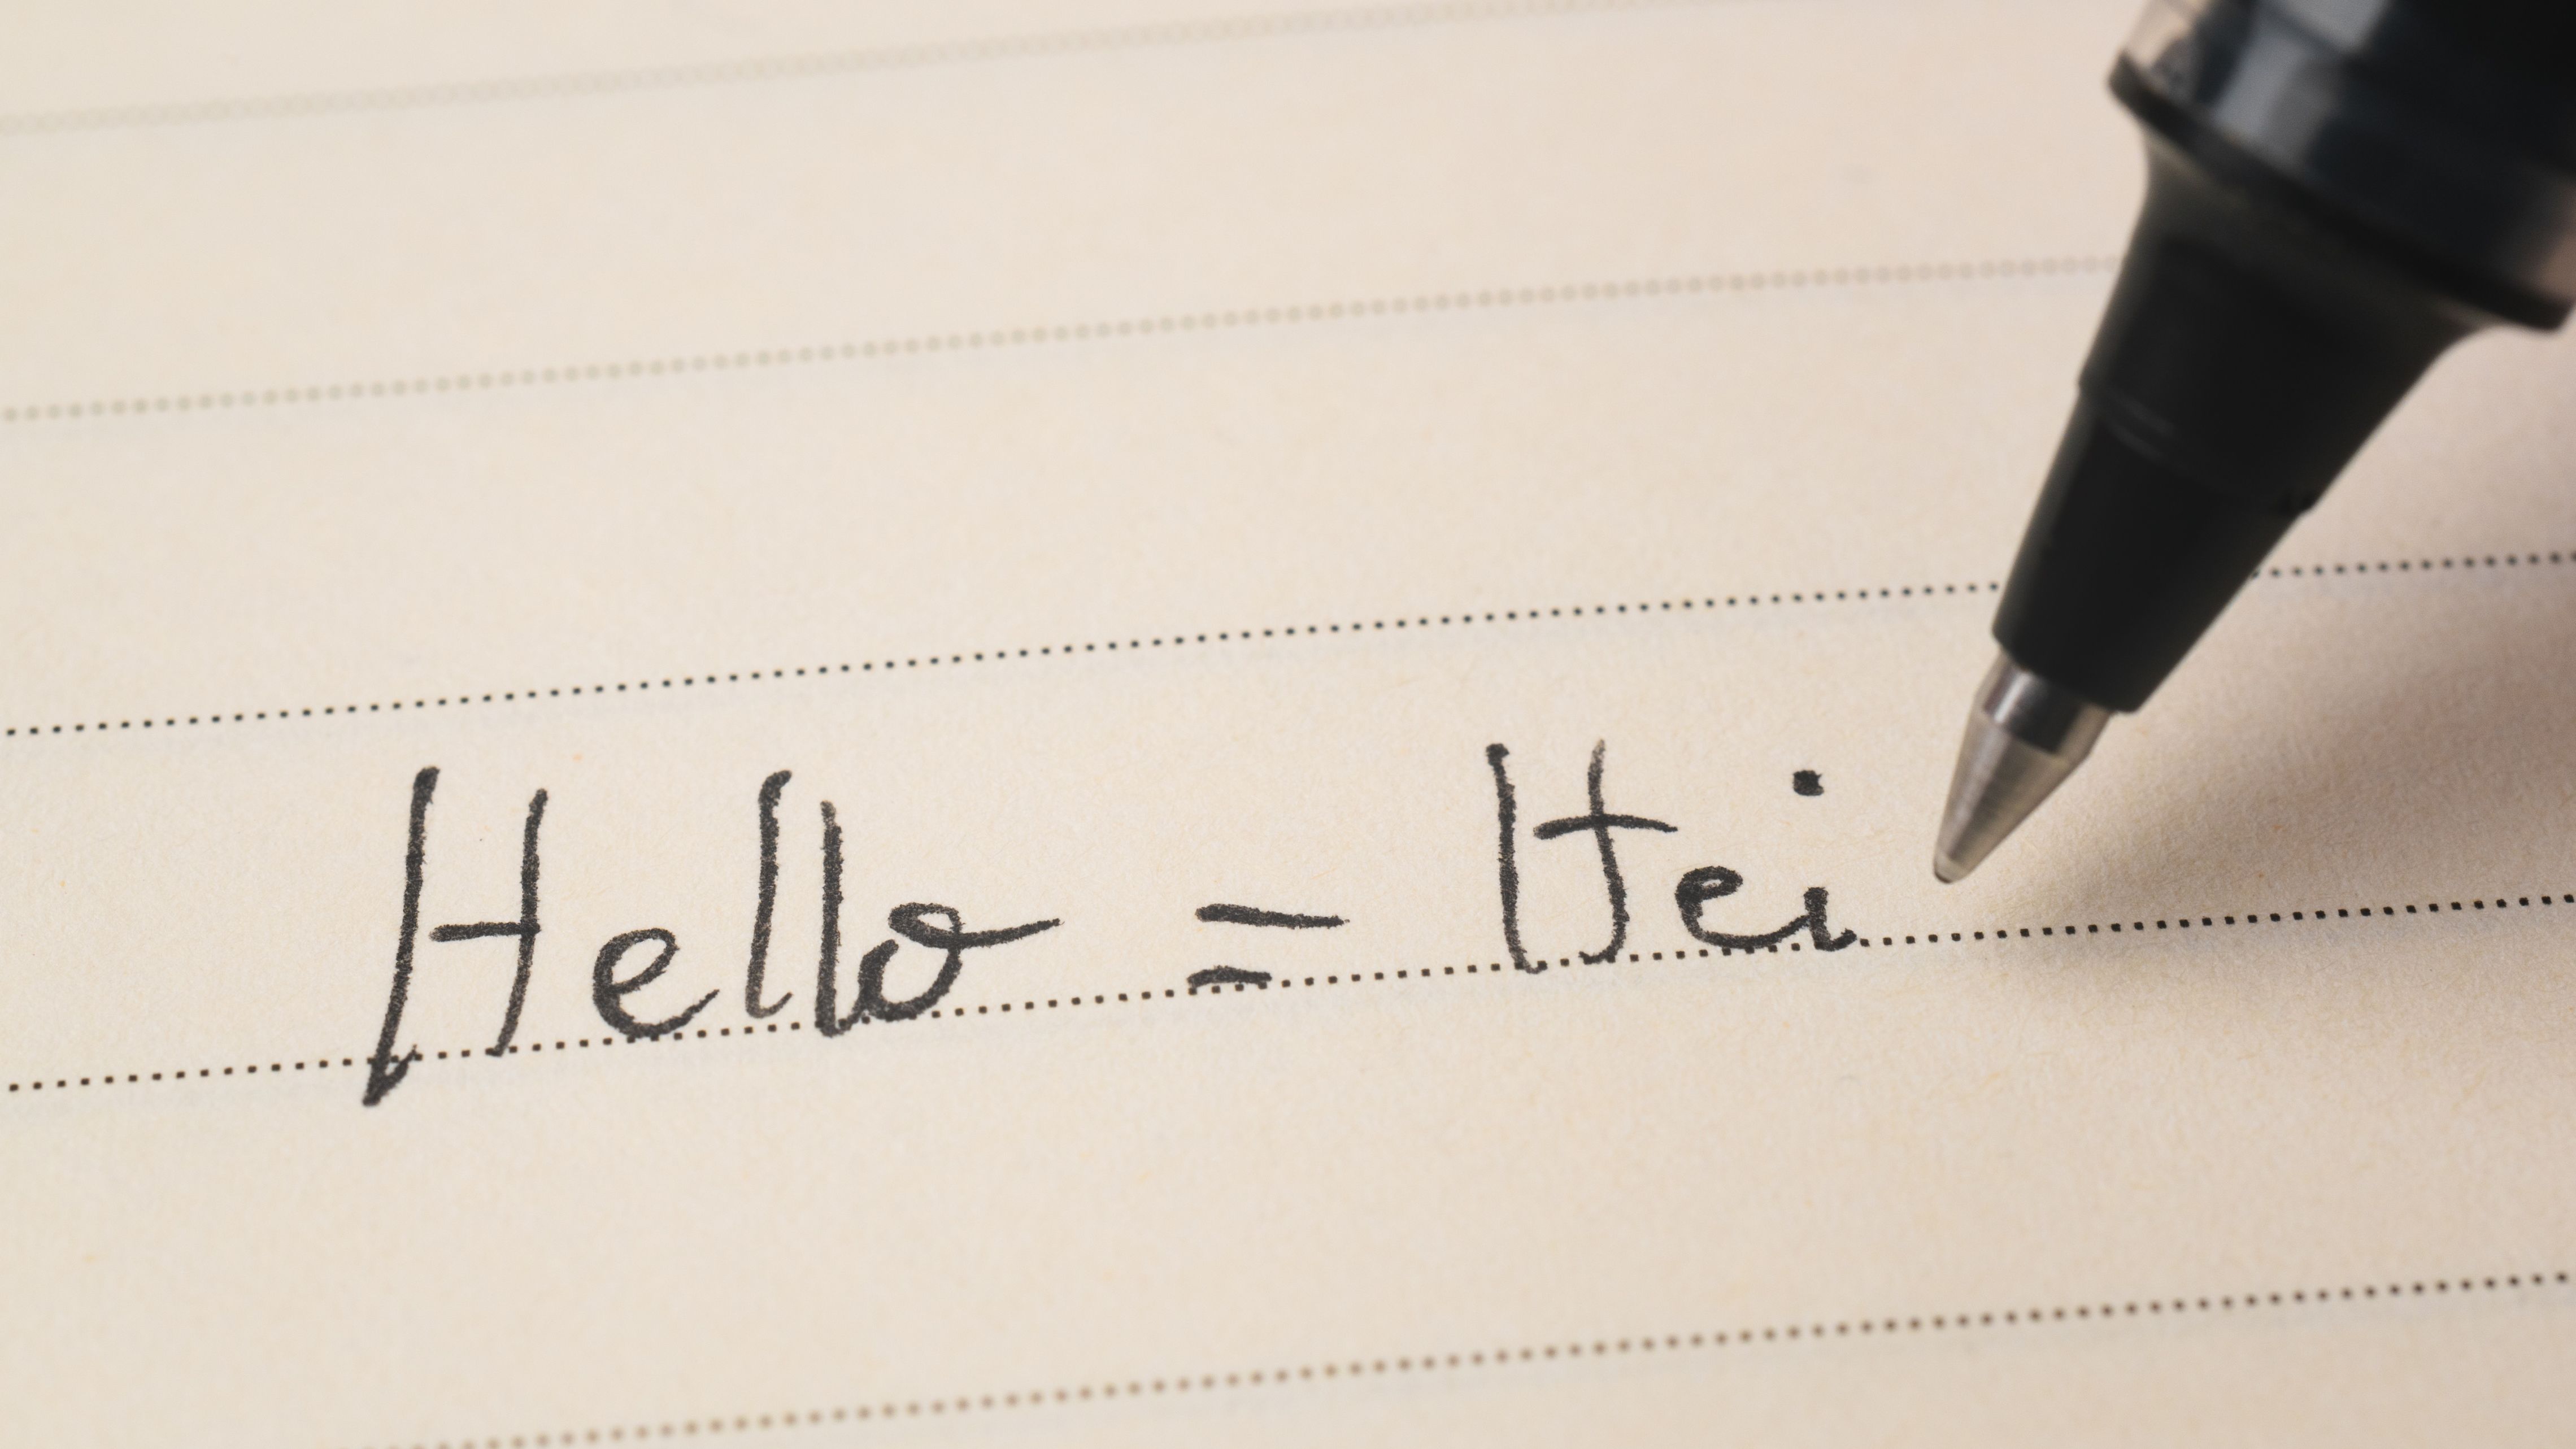 Hello = Hei